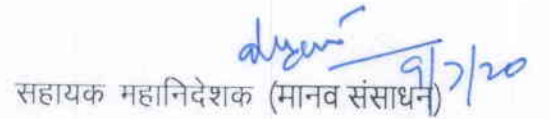 9/7/20
सहायक महानिदेशक (मानव संसाधन)